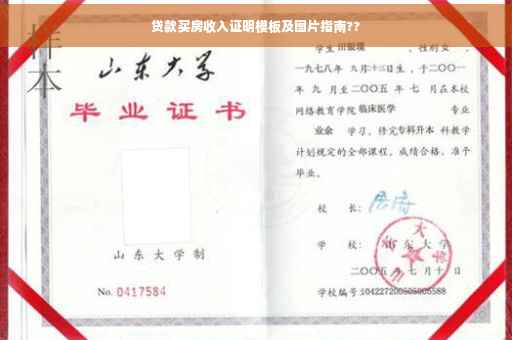 贷款买房收入证明模板及图片指南??
样本
山东大学
毕业证书
山东大学制
No. 0417584
学生田银瑛 ，性别女 ，
一九七八年 九月十三日生，于二〇〇一
年 九 月至二〇〇五 年 七 月在本校
网络教育学院 临床医学 专业
业余 学习，修完专科升本 科教学
计划规定的全部课程，成绩合格，准予
毕业。
校 长：
学 校：山东大学
二〇〇五 年 七 月 十 日
学校编号:104227200505005588